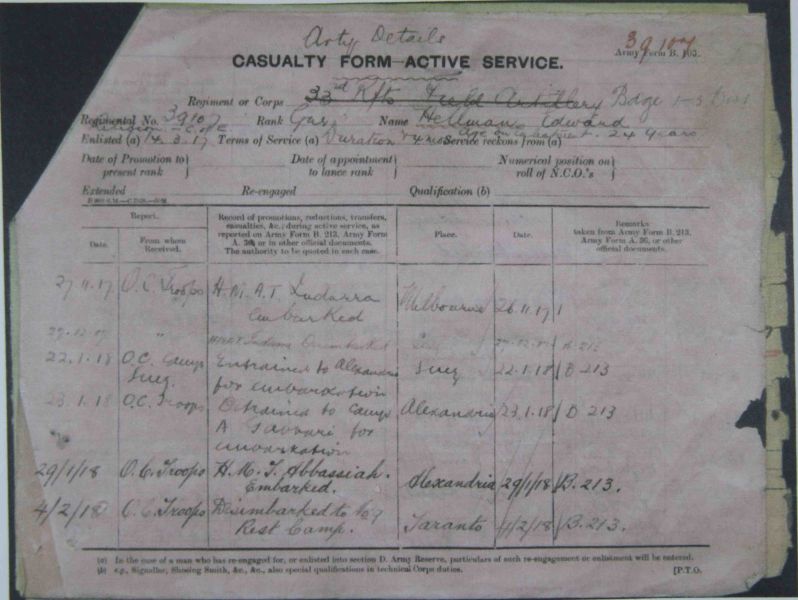 Arty Details
39107
Army Form B. 103.
CASUALTY FORM—ACTIVE SERVICE.
Regiment or Corps 33rd Rfts Field Artillery Bdge
Regimental No. 39107 Rank Gnr Name Hellman Edward
Religion C of E Age on enlistment 24 years
Enlisted (a) 14.3.17 Terms of Service (a) Duration Service reckons from (a)
Date of Promotion to present rank } Date of appointment to lance rank } Numerical position on roll of N.C.O.'s }
Extended Re-engaged Qualification (b)
Report. Record of promotions, reductions, transfers, casualties, &c., during active service, as reported on Army Form B. 213, Army Form A. 36, or in other official documents. The authority to be quoted in each case. Place. Date. Remarks taken from Army Form B. 213, Army Form A. 36, or other official documents.
Date. From whom Received.
27.11.17 O.C. Troops H.M.A.T. Indarra Melbourne 26.11.17
embarked
29.12.17 " Indarra Disembarked Suez 29.12.17 B 213
22.1.18 O.C. Camp Entrained to Alexandria Suez 22.1.18 B 213
Suez. for embarkation
23.1.18 O.C. Troops Detrained to Camp Alexandria 23.1.18 B 213
A for
embarkation
29/1/18 O.C. Troops H.M.T. Abbassiah. Alexandria 29/1/18 B. 213.
Embarked.
4/2/18 O.C. Troops Disembarked to Taranto 4/2/18 B. 213.
Rest Camp.
(a) In the case of a man who has re-engaged for, or enlisted into section D. Army Reserve, particulars of such re-engagement or enlistment will be entered.
(b) e.g., Signaller, Shoeing Smith, &c., &c., also special qualifications in technical Corps duties. [P.T.O.